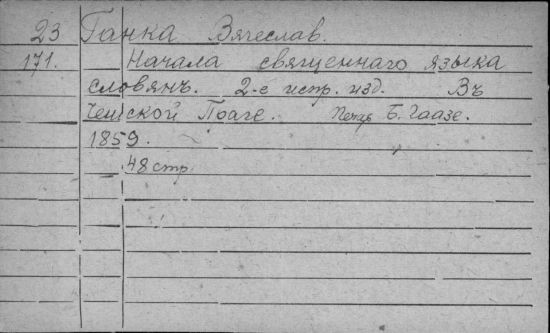 23 Ганка Вячеслав.
171. Начала священнаго языка
словянъ. 2-е испр. изд. Въ
Чешской Праге. Печат Б. Гаазе.
1859.
48 стр.